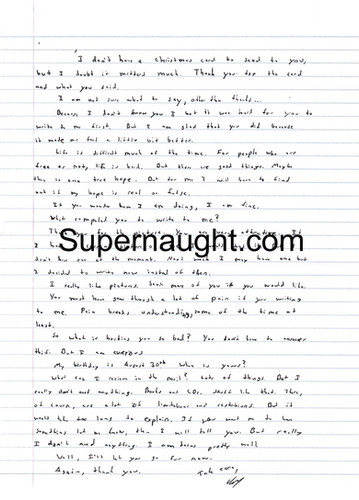 I don't have a Christmas card to send to you,
but I doubt it matters much. Thank you for the card
and what you said.
I am not sure what to say, other than thanks...
Because I don't know you I bet it was hard for you to
write to me first. But I am glad that you did because
it made me feel a little bit better.
Life is difficult much of the time. For people who are
free or not, life is hard. But there are good things. Maybe
there is some true hope. But for me I will have to find
out if my hope is real or false.
If you wonder how I am doing, I am fine.
What compelled you to write to me?
Thank you for the picture. You are
I
Supernaught.com
don't have one at the moment. Next week I may have one but
I decided to write now instead of then.
I really like pictures. Send more of you if you would like.
You must have gone through a lot of pain if you writing
to me. Pain breeds understanding, some of the time at
least.
So what is hurting you so bad? You don't have to answer
this. But I am curious
My birthday is August 30th When is yours?
What can I receive in the mail? Lots of things. But I
really don't need anything. Books and CDs. Stuff like that. There,
of course, are a lot of limitations and restrictions. But it
would take too long to explain. If you want me to have
something let me know, then I will tell you. But really
I don't need anything. I am pretty well
Well, I'll let you go for now.
Again, thank you. Take care,